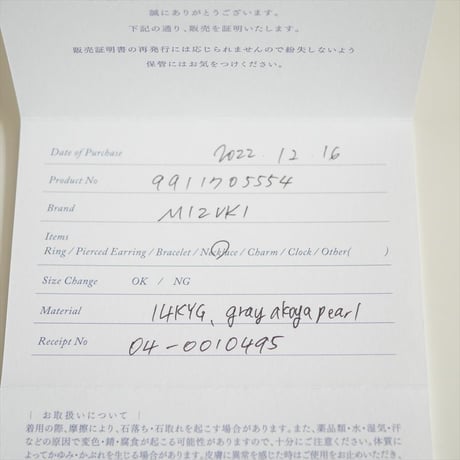 誠にありがとうございます。
下記の通り、販売を証明いたします。
販売証明書の再発行には応じられませんので紛失しないよう
保管にはお気をつけください。
Date of Purchase 2022.12.16
Product No 9911705554
Brand MIZUKI
Items
Ring / Pierced Earring / Bracelet / Necklace / Charm / Clock / Other( )
Size Change OK / NG
Material 14KYG、gray akoya pearl
Receipt No 04-0010495
| お取扱いについて |
着用の際、摩擦により、石落ち・石取れを起こす場合があります。また、薬品類・水・湿気・汗
などの原因で変色・錆・腐食が起こる可能性がありますので、十分にご注意ください。体質に
よってかゆみ・かぶれを生じる場合があります。皮膚に異常を感じた時はご使用をお止めいただ